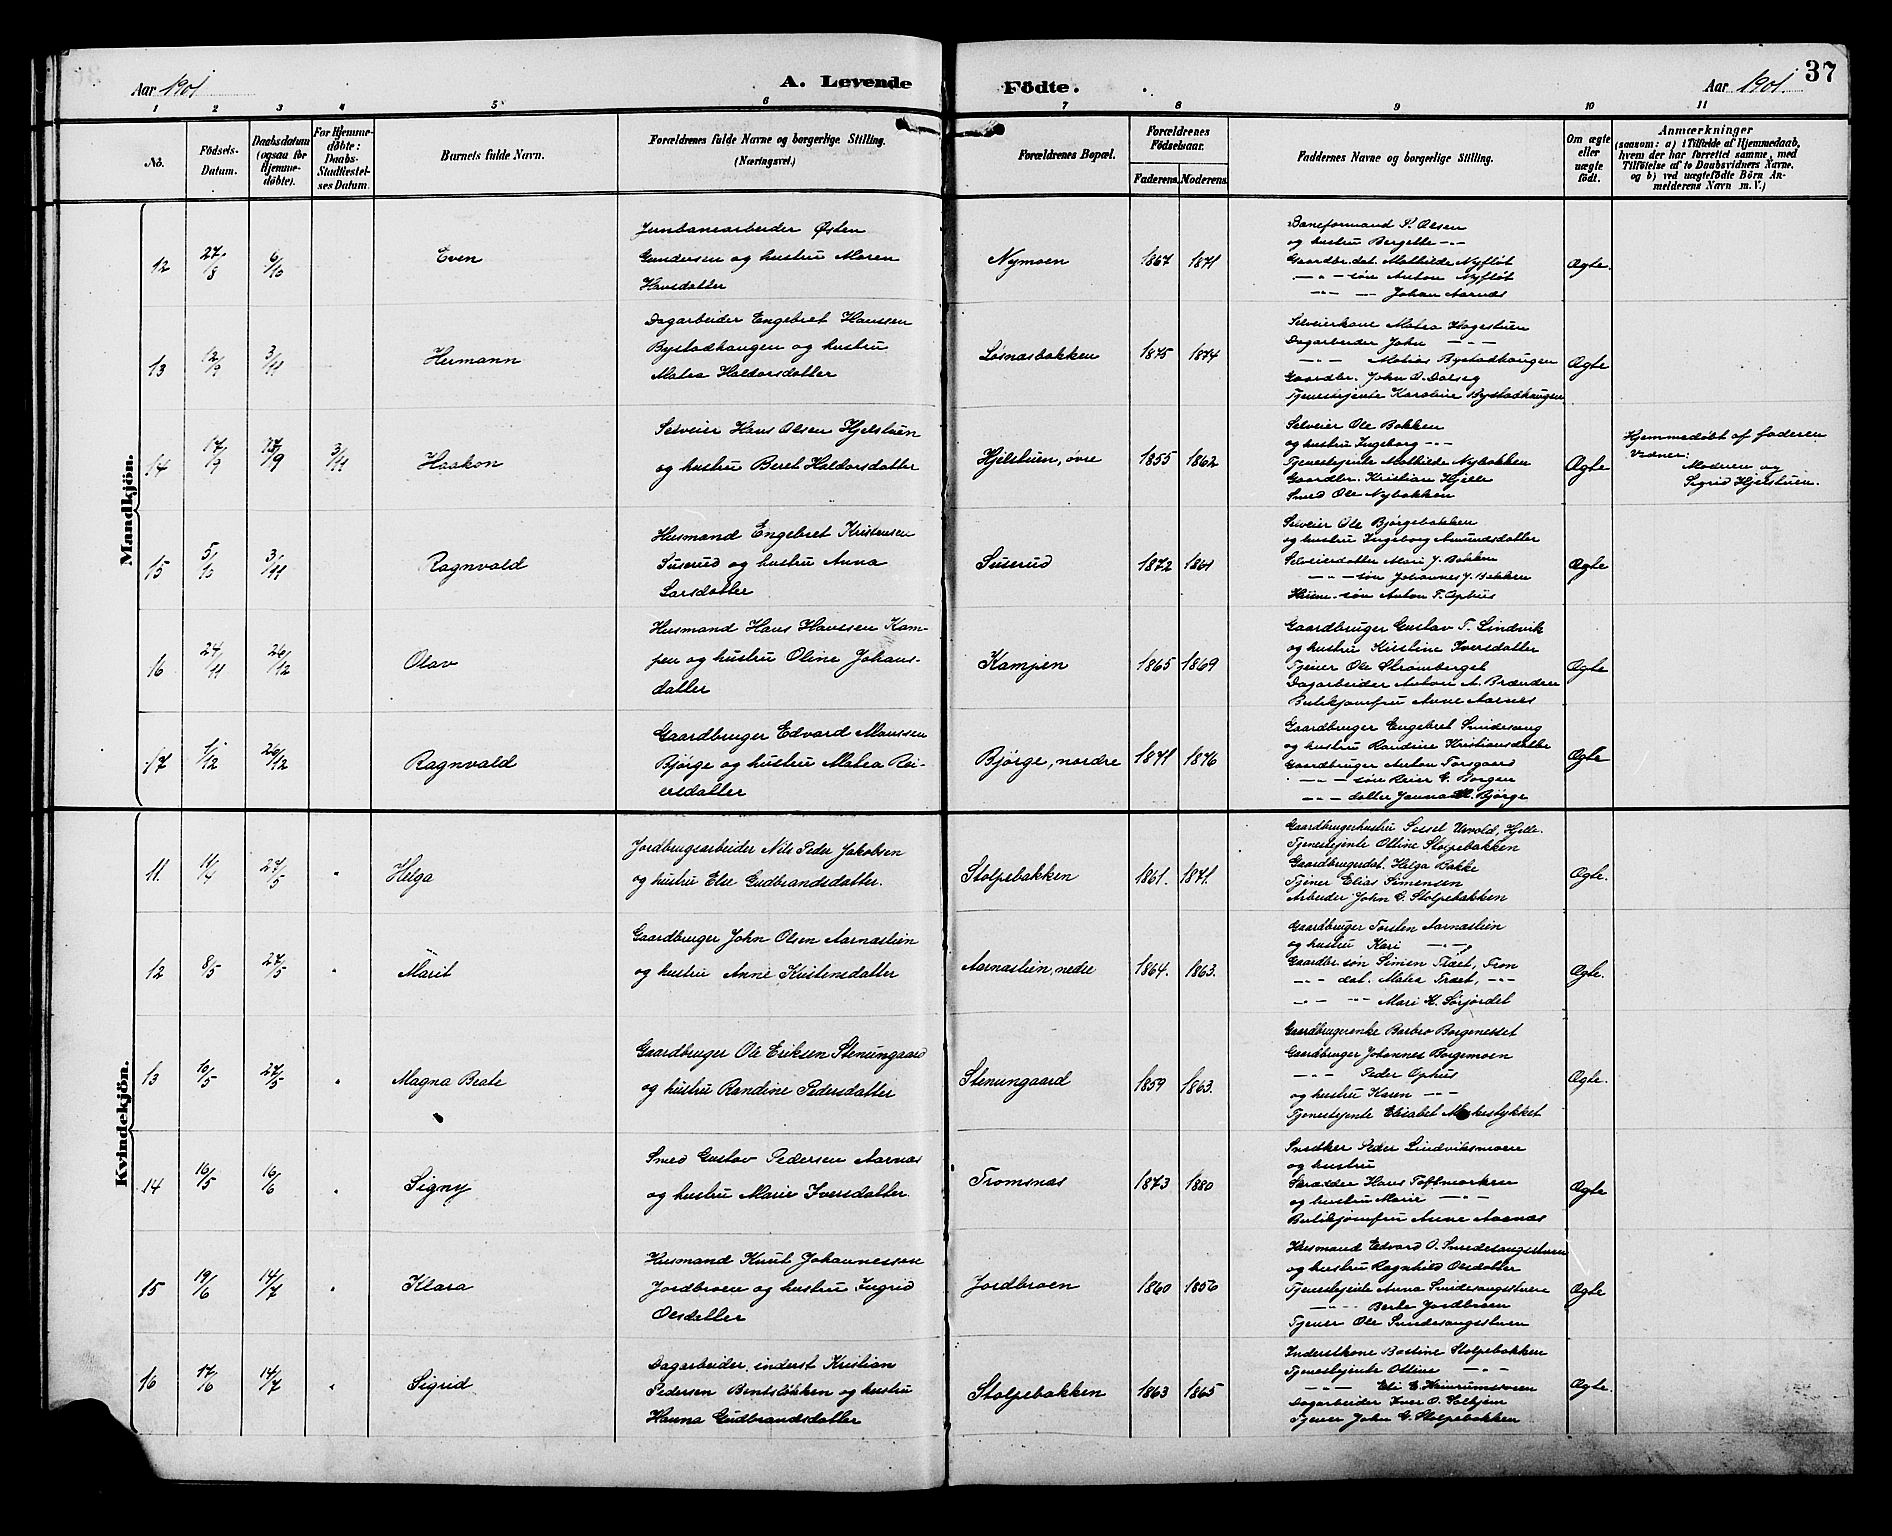 37
Aar 1901
A. Levende
Födte.
Aar 1901.
1 2 3 4 5 6 7 8 9 10 11
No.
Födsels-Datum.
Daabsdatum (ogsaa för Hjemmedøbte).
For Hjemmedøbte: Daabs-Stadfæstelses Datum.
Barnets fulde Navn.
Forældrenes fulde Navne og borgerlige Stilling.
(Næringsvei.)
Forældrenes Bopæl.
Forældrenes Födselsaar.
Faderens. Moderens.
Faddernes Navne og borgerlige Stilling.
Om ægte eller uægte födt.
Anmærkninger
(saasom: a) i Tilfælde af Hjemmedaab, hvem der har forrettet samme, med Tilføielse af to Daabsvidners Navne, og b) ved uægtefödte Börn Anmelderens Navn m. V.)
Mandkjön.
12 27/8 6/10 Even
Jernbanearbeider Østen
Gundersen og hustru Maren
Hansdatter
Nymoen 1867 1871
Baneformand P. Olsen
og hustru Bergette -"-
Gaardbr.dat. Mathilde Nyfløt
-"- søn Anton Nyfløt
-"- — Johan Aarnæs
Ægte.
13 12/9 3/11 Hermann
Dagarbeider Engebret Hanssen
Bystadhaugen og hustru
Matea Haldorsdatter
Løsnæsbakken 1875 1874
Selveierkone Matea Hagestuen
Dagarbeider John -"-
-"- Matias Bystadhaugen
Gaardbr. John O. Dalseg
Tjenestejente Karoline Bystadhaugen
Ægte
14 17/9 17/9 3/11 Haakon
Selveier Hans Olsen Hjelstuen
og hustru Beret Haldorsdatter
Hjelstuen, øvre 1855 1862
Selveier Ole Bakken
og hustru Ingeborg -"-
Tjenestejente Mathilde Nybakken
Gaardbr. Kristian Hjelle
Smed Ole Nybakken
Ægte
Hjemmedøbt af faderen
Vidner:
Moderen og
Sigrid Hjelstuen.
15 5/10 3/11 Ragnvald
Husmand Engebret Kristensen
Suserud og hustru Anna
Larsdatter
Suserud 1872 1861
Selveier Ole Bjørgebakken
og hustru Ingeborg Amundsdatter
Selveierdatter Mari J. Bakken
-"- søn Johannes J. Bakken
Husm. søn Anton T. Ophus
Ægte
16 24/11 26/12 Olav
Husmand Hans Hanssen Kam-
pen og hustru Oline Johans-
datter
Kampen 1865 1869
Gaardbruger Gustav T. Lindvik
og hustru Kirstine Iversdatter
Tjener Ole Strømberget
Dagarbeider Anton A. Brænden
Butikjomfru Anne Aarnes
Ægte
17 1/12 26/12 Ragnvald
Gaardbruger Edvard Monssen
Bjørge og hustru Matea Rei-
ersdatter
Bjørge, nordre 1871 1876
Gaardbruger Engebret Sundesang
og hustru Randine Kristiansdatter
Gaardbruger Anton Torsgaard
-"- søn Reier G. Borgen
-"- datter Janna M. Bjørge
Ægte
Kvindekjön.
11. 11/4 27/5 " Helga
Jordbrugsarbeider Nils Peder Jakobsen
og hustru Else Gudbrandsdatter.
Stolpebakken 1861. 1871.
Gaardbrugerhustru Sissel Ulvold, Hjelle.
Tjenestejente Ottine Stolpebakken
Gaardbrugerdat. Helga Bakke
Tjener Elias Simensen
Arbeider John G. Stolpebakken
Ægte.
12 8/5 27/5 " Marit
Gaardbruger John Olsen Aarnæslien
og hustru Anne Kristensdatter
Aarnæslien, nedre 1864. 1863.
Gaardbruger Torsten Aarnæslien
og hustru Kari -"-
Gaardbr. søn Simen Træet, Fron
-"- dat. Matea Træet, -"-
-"- -"- Mari K. Sørjordet
Ægte.
13 10/5 27/5 " Magna Beate
Gaardbruger Ole Eriksen Stenumgaard
og hustru Randine Pedersdatter
Stenumgaard 1859 1863.
Gaardbrugerenke Barbro Borgenesset
Gaardbruger Johannes Borgemoen
-"- Peder Ophus
og hustru Karen -"-
Tjenestejente Elisabet
Ægte.
14 16/5 16/6 " Signy
Smed Gustav Pedersen Aarnæs
og hustru Marie Iversdatter.
Tromsnæs 1873 1880
Snedker Peder Lindviksmoen
og hustru
Skrædder Hans Toftemarken
og hustru Marie -"-
Butikjomfru Anne Aarnæs
Ægte
15 19/6 14/7 " Klara
Husmand Knut Johannessen
Jordbroen og hustru Ingrid
Olsdatter
Jordbroen 1860 1856
Husmand Edvard O. Sundesangsstuen
og hustru Ragnhild Olsdatter
Tjenestejente Anna Sundesangsstuen
-"- Berte Jordbroen
Tjener Ole Sundesangsstuen
Ægte
16 17/6 14/7 " Sigrid
Dagarbeider, inderst Kristian
Pedersen Bentsløkken og hustru
Hanna Gudbrandsdatter
Stolpebakken 1863 1865
Inderstkone Bostine Stolpebakken
Tjenestejente Ottine -"-
-"- Eli E.
Dagarbeider Iver O. Solhjem
Tjener John G. Stolpebakken
Ægte.